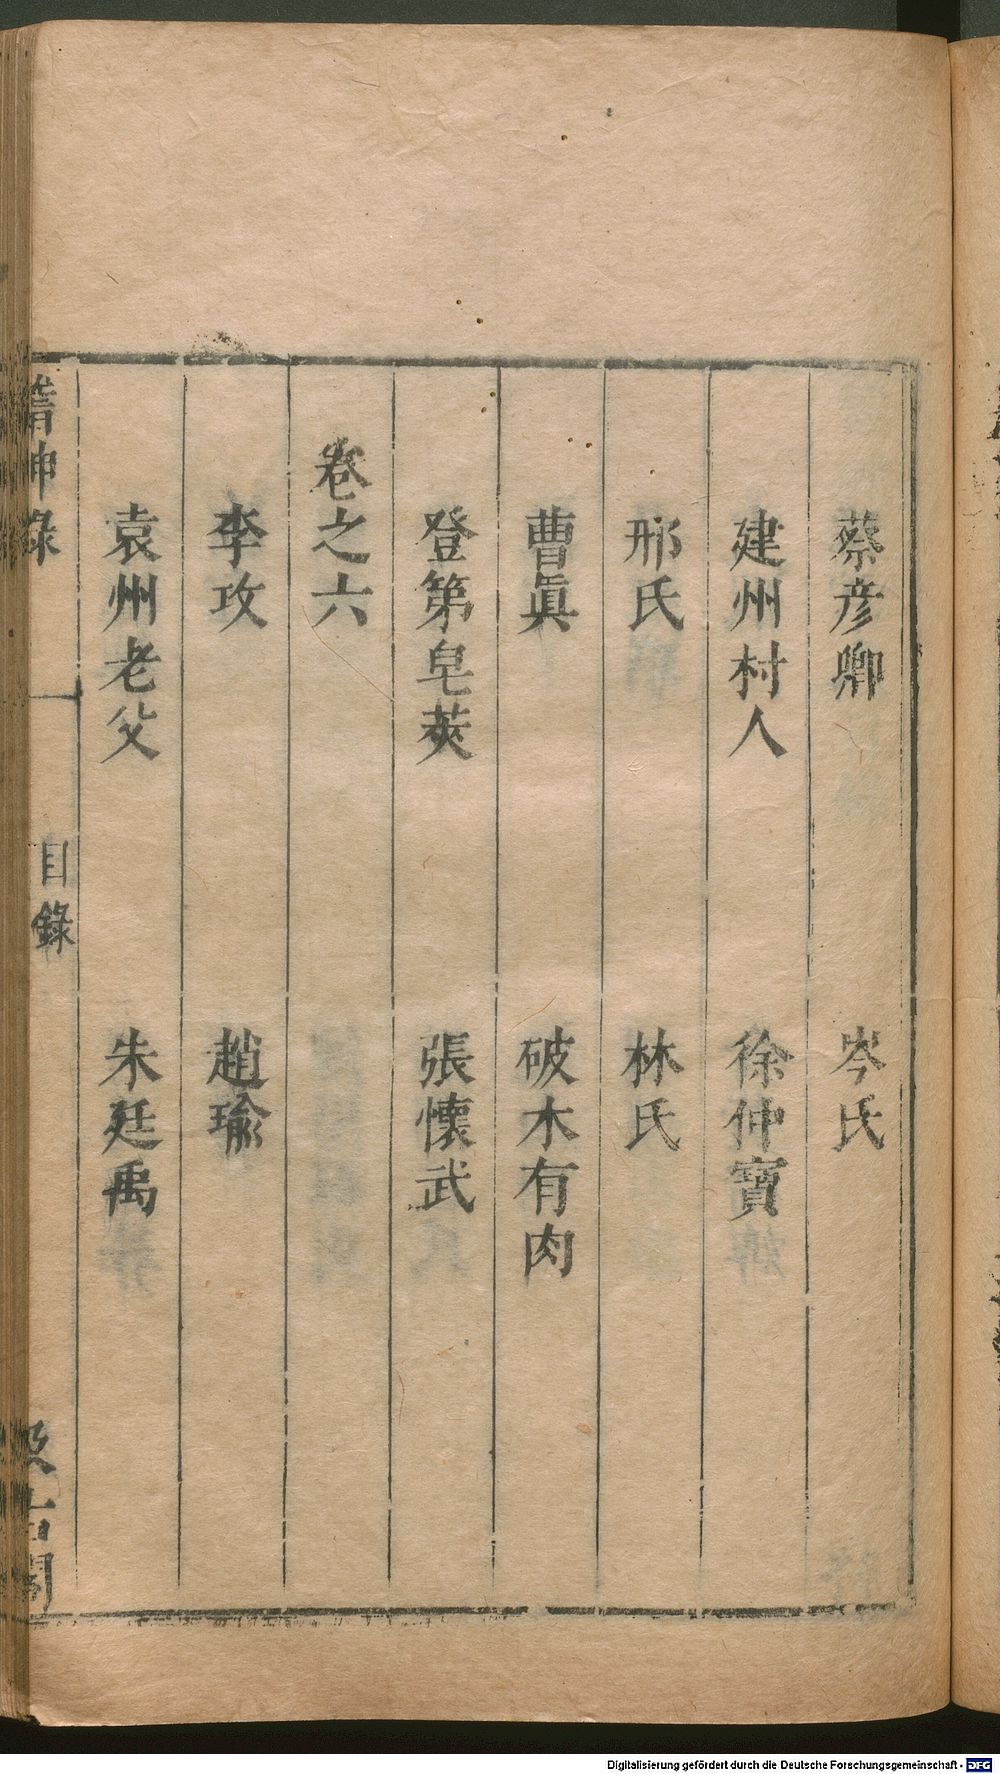 蔡彥卿　岑氏
建州村人　徐仲寶
邢氏　林氏
曹眞　破木有肉
登第皂莢　張懷武
卷之六
李攻　趙瑜
袁州老父　朱廷禹
稽神錄　目錄　汲古閣
Digitalisierung gefördert durch die Deutsche Forschungsgemeinschaft - DFG